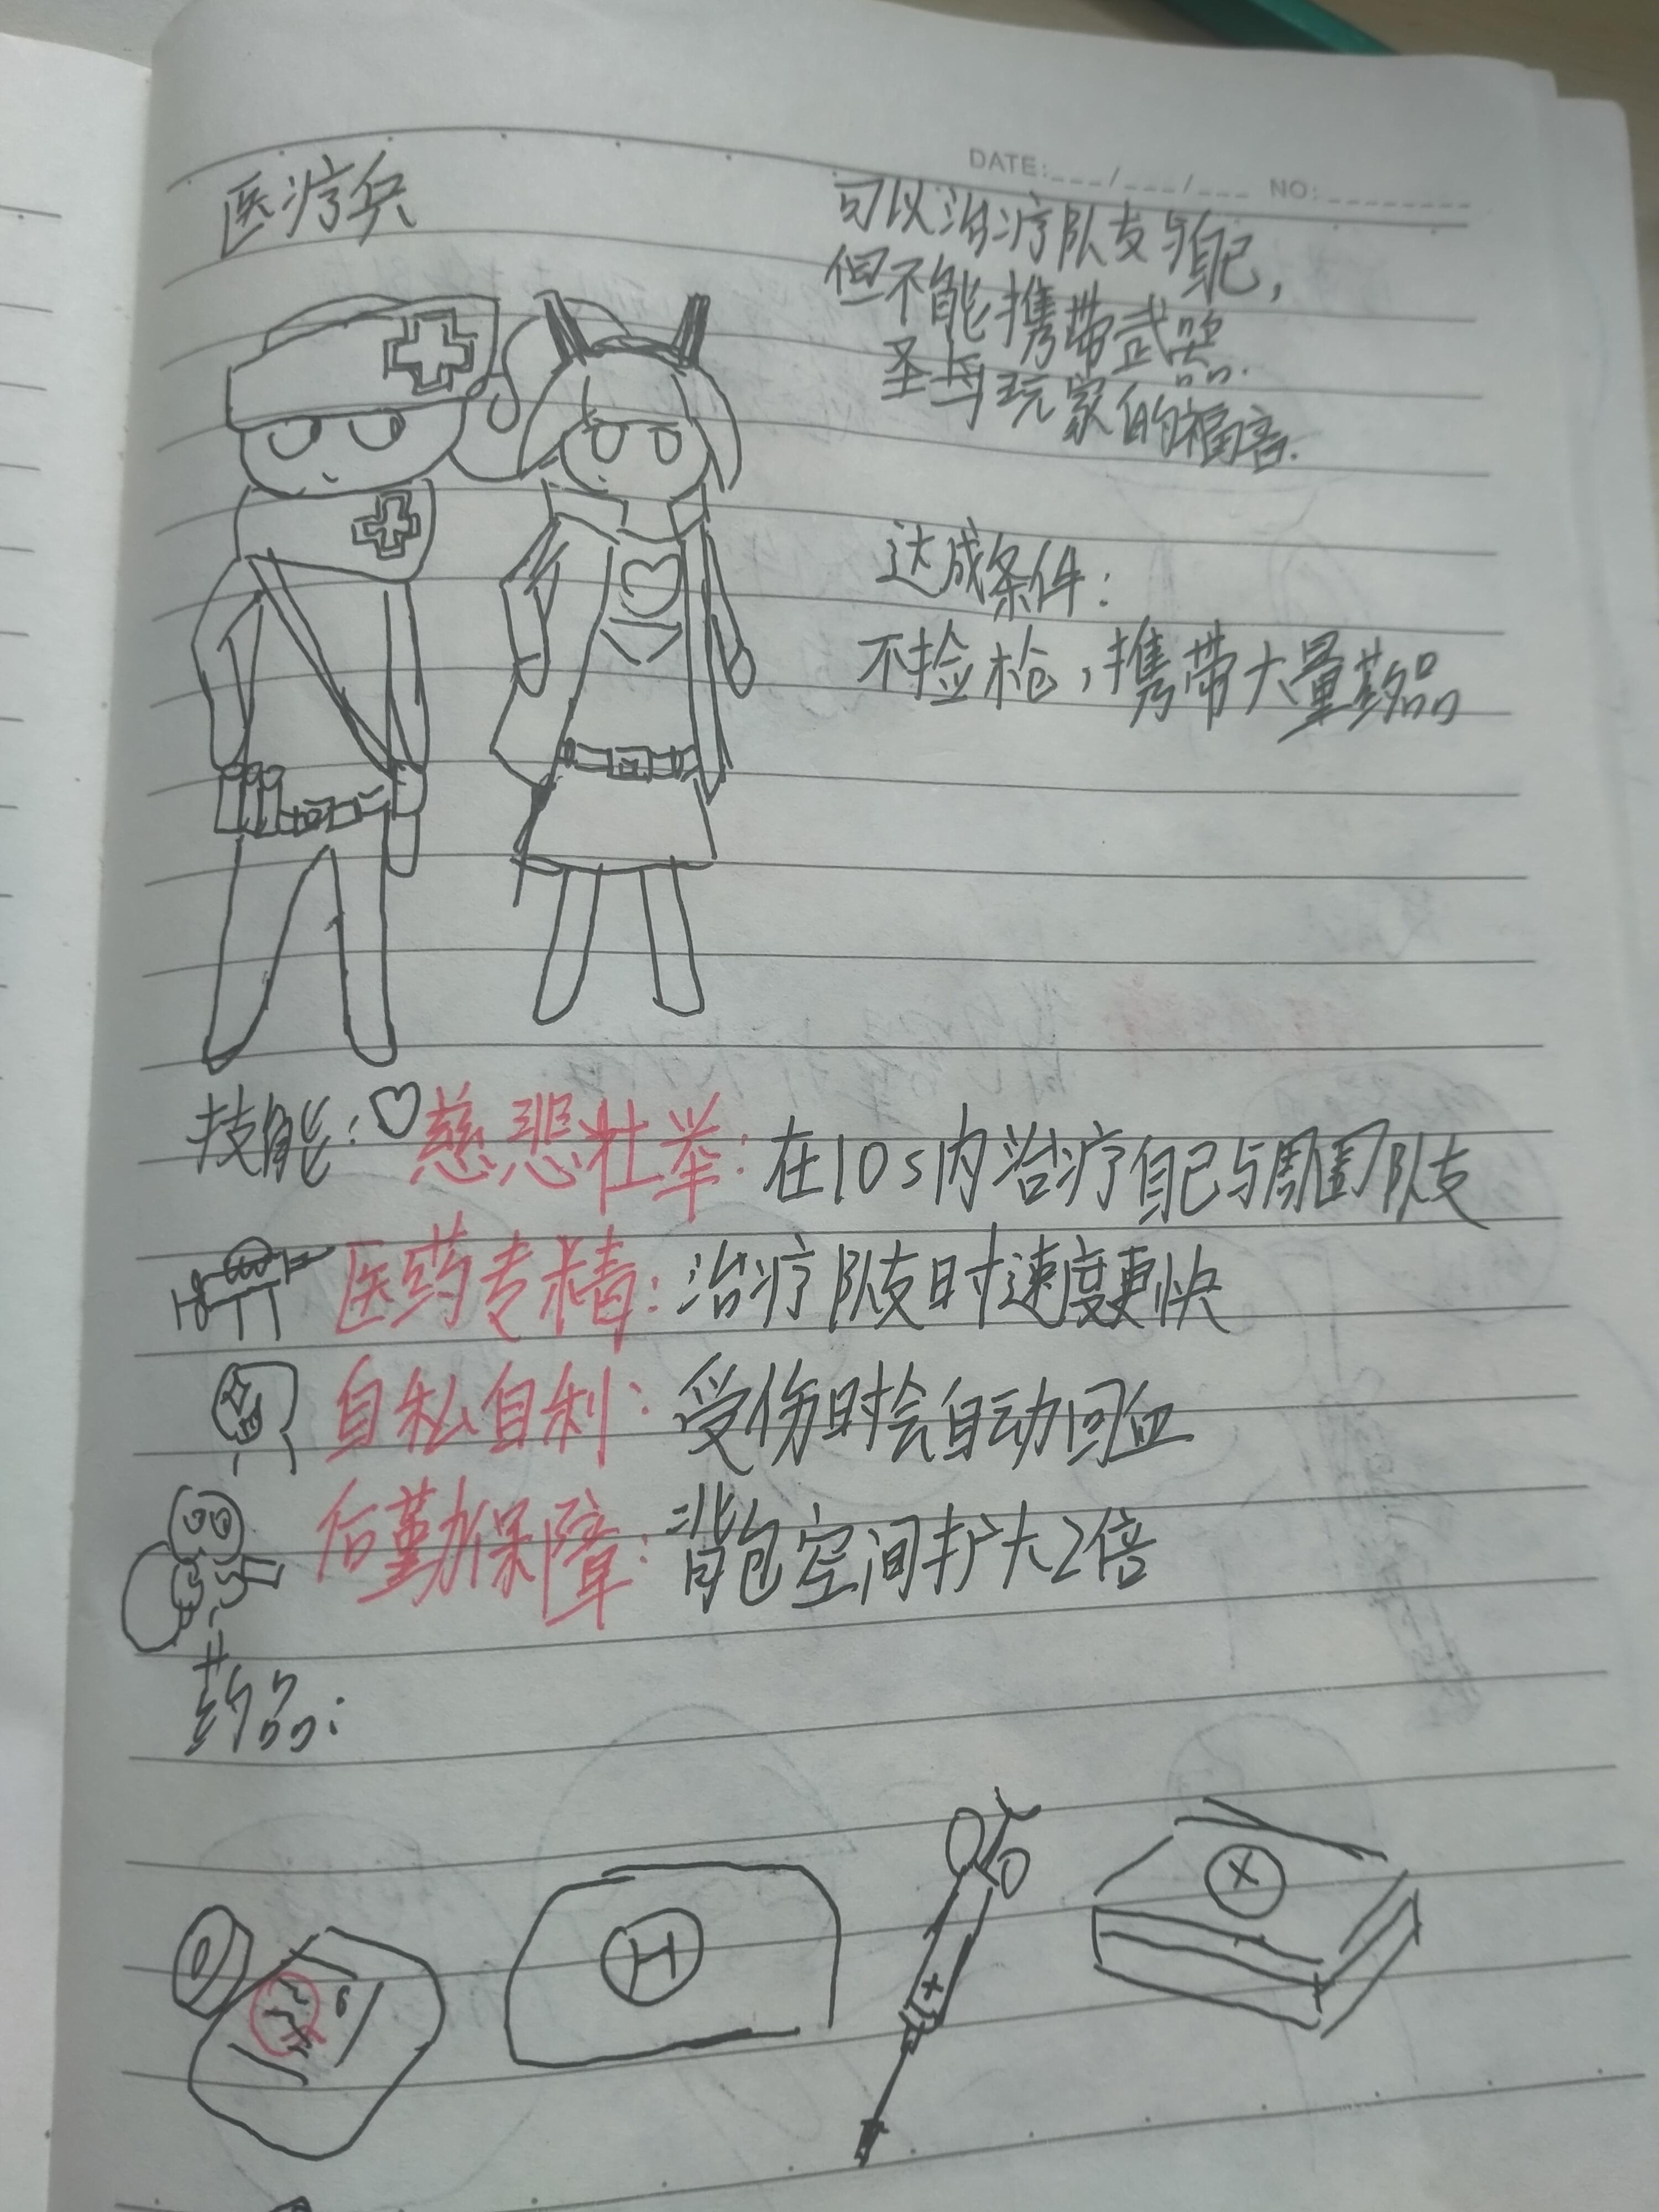 DATE:___/___/___ NO:________
医疗兵
可以治疗队友与自己,
但不能携带武器.
圣母玩家的福音.
达成条件:
不捡枪,携带大量药品
技能:♡慈悲壮举:在10s内治疗自己与周围队友
医药专精:治疗队友时速度更快
自私自利:受伤时会自动回血
后勤保障:背包空间扩大2倍
药品:
H